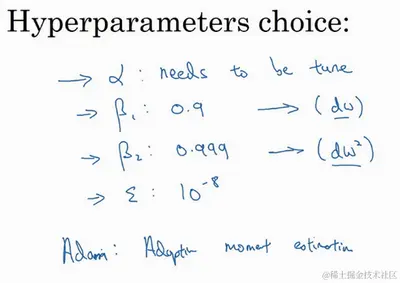 Hyperparameters choice:
→ α : needs to be tune
→ β₁ : 0.9 → (dw)
→ β₂ : 0.999 → (dw²)
→ ε : 10⁻⁸
Adam : Adaptiv moment estimation
@稀土掘金技术社区